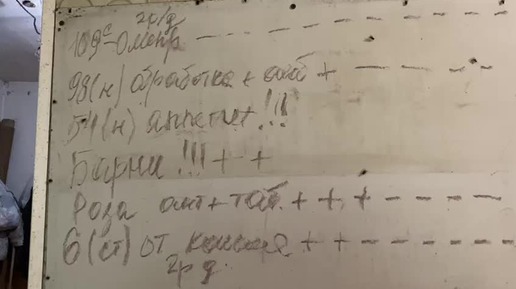 2р/д
109с-Омепр - - - - - - - - - - - -
98(н) обработка + таб + - - - - -
54(н) аппетит!!!
Барни !!! + +
Роза ант + таб. + + + - - - - -
6(ст) от кашля + + - - - - - - -
2р д.